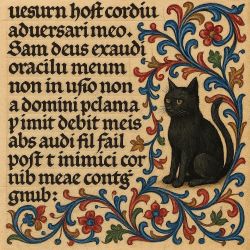 uesurn hoſt cordiu
aduersari meo.
Sam deus exaudi
oracilu meum
non in uſio non
a domini pdama
ƿ imit debit meis
abs audi fil fail
poſt t inimici cor
nib meae contȝ
gnub: